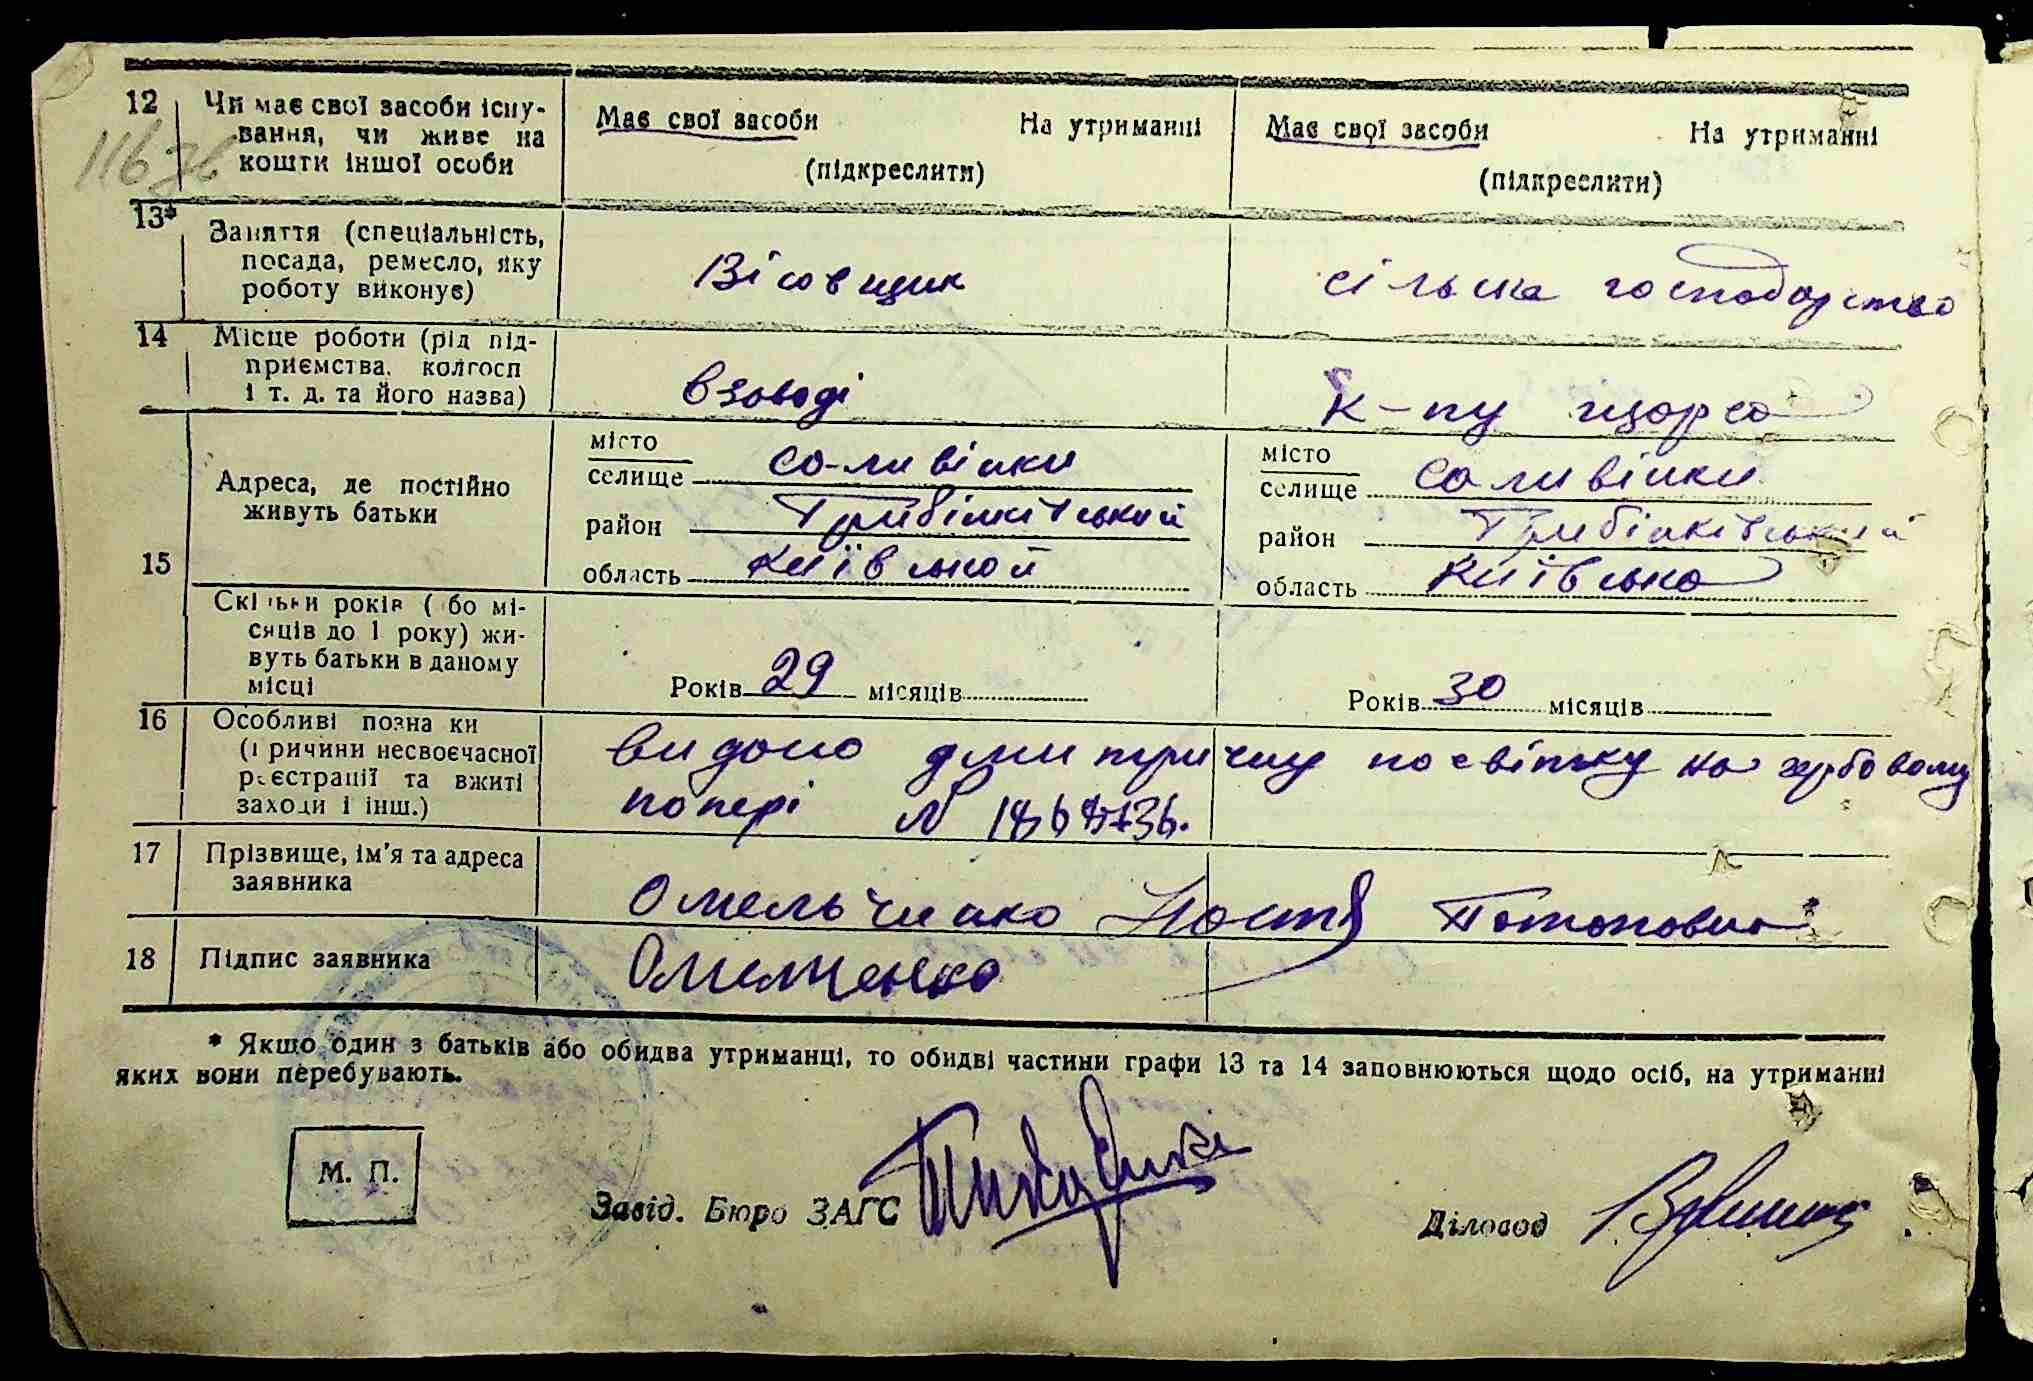 12 Чи має свої засоби існу-
вання, чи живе на
кошти іншої особи
Має свої засоби На утриманні
(підкреслити)
Має свої засоби На утриманні
(підкреслити)
116 зв
13* Заняття (спеціальність,
посада, ремесло, яку
роботу виконує)
Вісовщик
сільска господарство
14 Місце роботи (рід під-
приємства, колгосп
і т. д. та його назва)
в заводі
к-пу щорса
15
Адреса, де постійно
живуть батьки
місто
селище соливінки
район Грибінківський
область Київської
місто
селище соливінки
район Грибінківський
область Київська
Скільки років (або мі-
сяців до 1 року) жи-
вуть батьки в даному
місці
Років 29 місяців
Років 30 місяців
16 Особливі познаки
(причини несвоєчасної
реєстрації та вжиті
заходи і інш.)
видано посвітку на гербовому
папері N
17 Прізвище, ім'я та адреса
заявника
Омельченко Настя Потоповна
18 Підпис заявника
Омельченко
* Якщо один з батьків або обидва утриманці, то обидві частини графи 13 та 14 заповнюються щодо осіб, на утриманні
яких вони перебувають.
М. П.
Завід. Бюро ЗАГС
Діловод